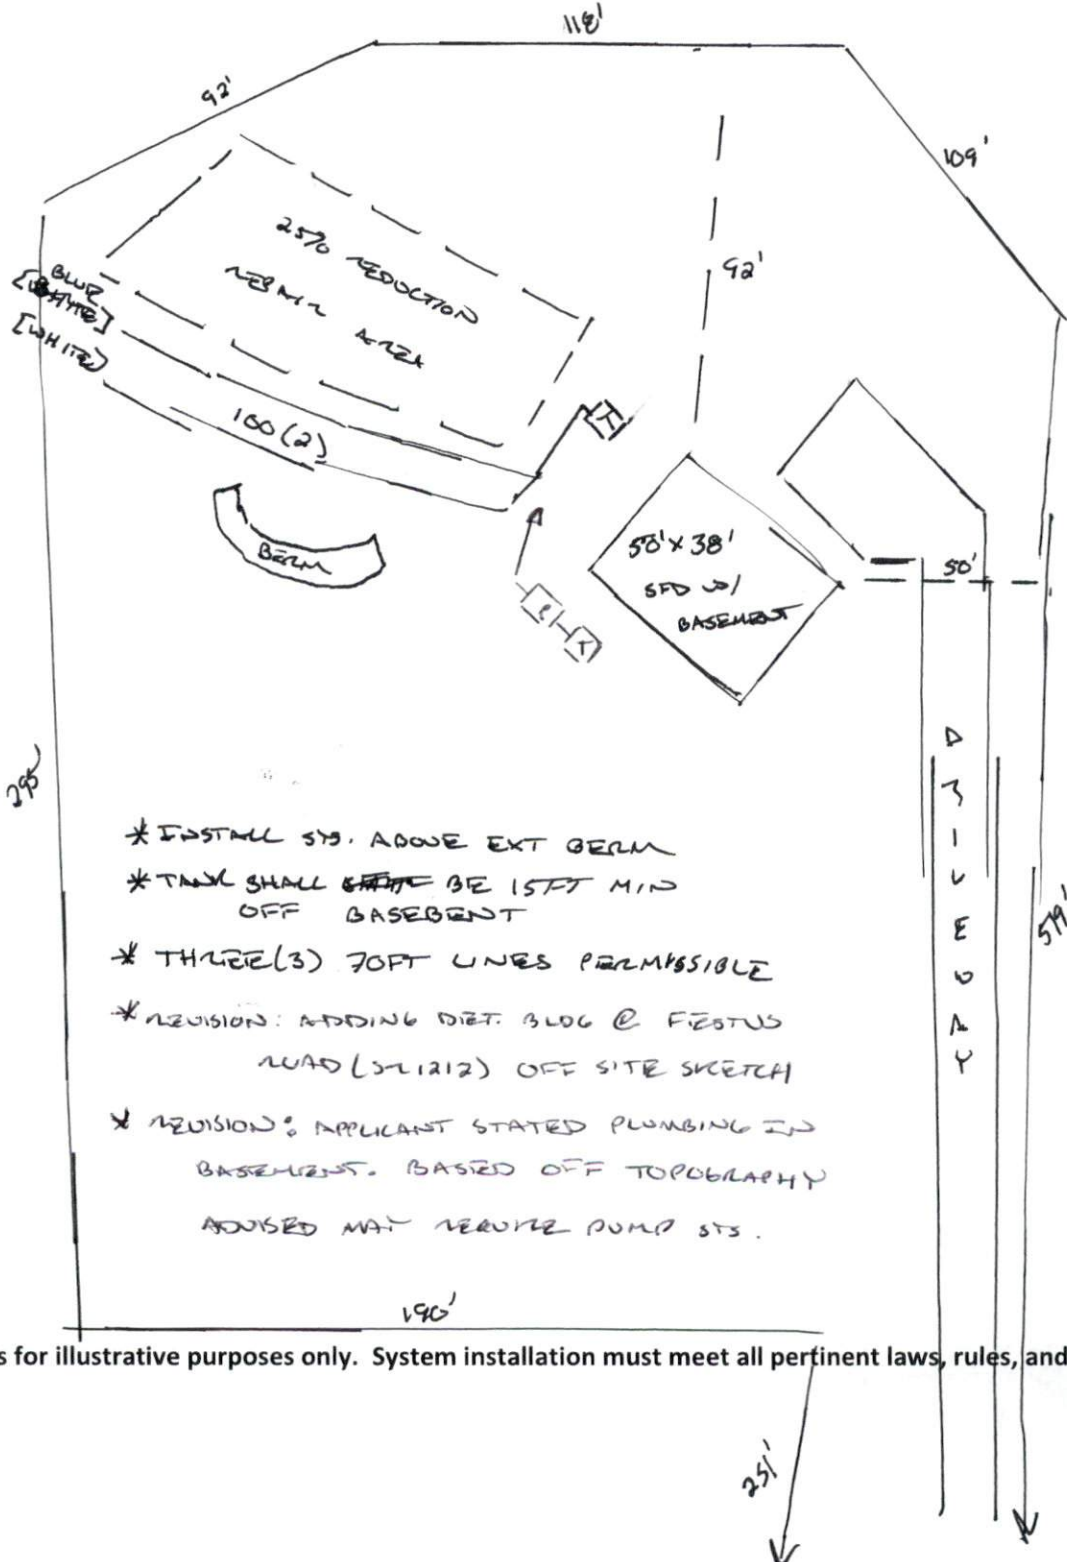 118'
92'
109'
25% REDUCTION
REPAIR AREA
92'
BLUE
[WHITE]
[WHITE]
100(2)
T
BERM
50' X 38'
SFD W/
BASEMENT
50'
P
T
DRIVEWAY
295'
519'
* INSTALL SYS. ABOVE EXT BERM
* TANK SHALL BE 15FT MIN
OFF BASEBENT
* THREE(3) 70FT LINES PERMISSIBLE
* REVISION: ADDING DET. BLDG @ FESTUS
ROAD (SR1212) OFF SITE SKETCH
* REVISION: APPLICANT STATED PLUMBING IN
BASEMENT. BASED OFF TOPOGRAPHY
ADVISED MAY REQUIRE PUMP SYS.
190'
s for illustrative purposes only. System installation must meet all pertinent laws, rules, and
251'